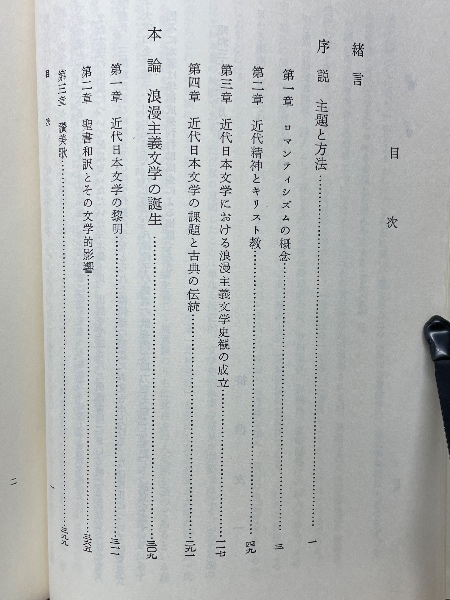 目次
緒言
序説 主題と方法……一
第一章 ロマンティシズムの概念……三
第二章 近代精神とキリスト教……四九
第三章 近代日本文学における浪漫主義文学史観の成立……一一七
第四章 近代日本文学の課題と古典の伝統……二九一
本論 浪漫主義文学の誕生……三〇九
第一章 近代日本文学の黎明……三一一
第二章 聖書和訳とその文学的影響……三六五
第三章 讃美歌……三九九
目次
一
二